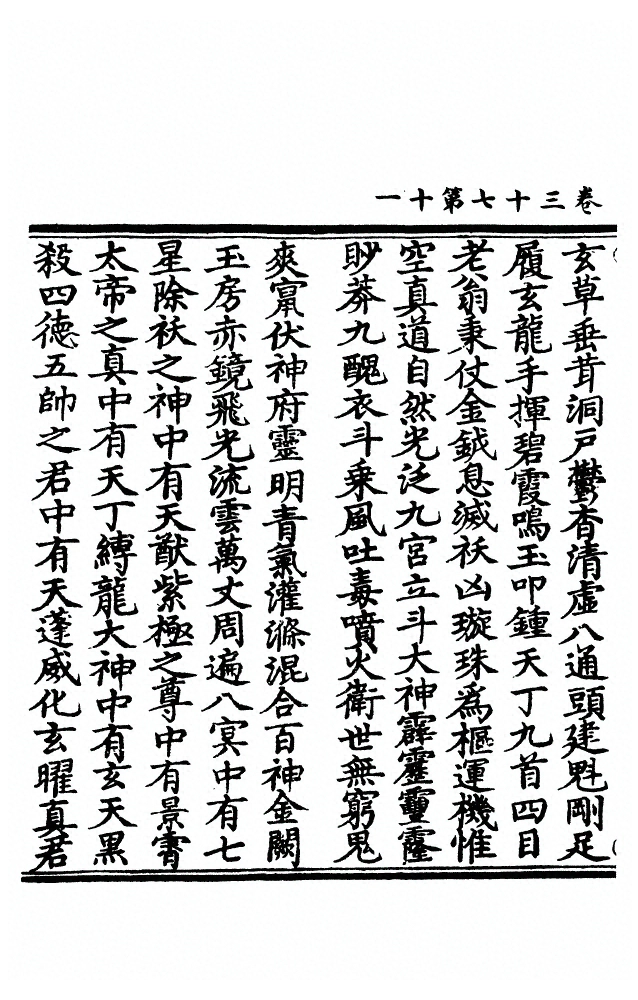 卷三十七第十一
玄草垂茸洞戸鬱香清虛八通頭建魁剛足
履玄龍手揮碧霞鳴玉叩鍾天丁九首四目
老翁秉仗金鉞息滅袄凶璇珠為樞運機惟
空真道自然光泛九宮立斗大神霹靂靈霳
眇莽九醜衣斗乗風吐毒噴火衛世無窮鬼
爽甯伏神府靈明青氣灌滌混合百神金闕
玉房亦鏡飛光流雲萬丈周遍八冥中有七
星除袄之神中有天猷紫極之尊中有景霄
太帝之真中有天丁縛龍大神中有玄天黒
殺四德五帥之君中有天蓬威化玄曜真君